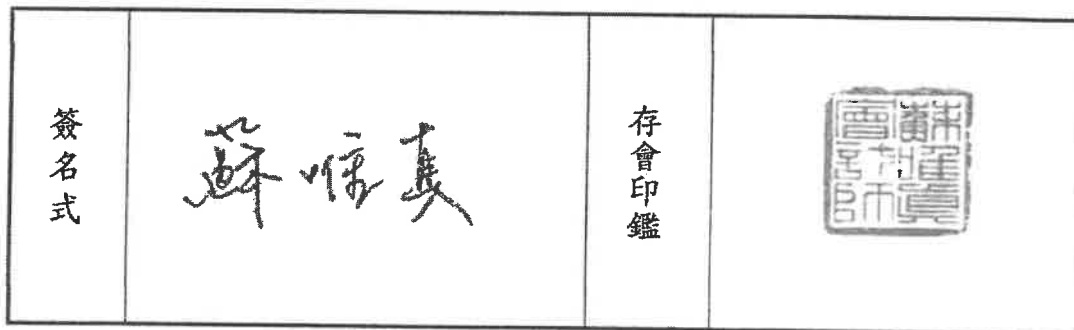 簽名式
蘇 真
存會印鑑
會計師